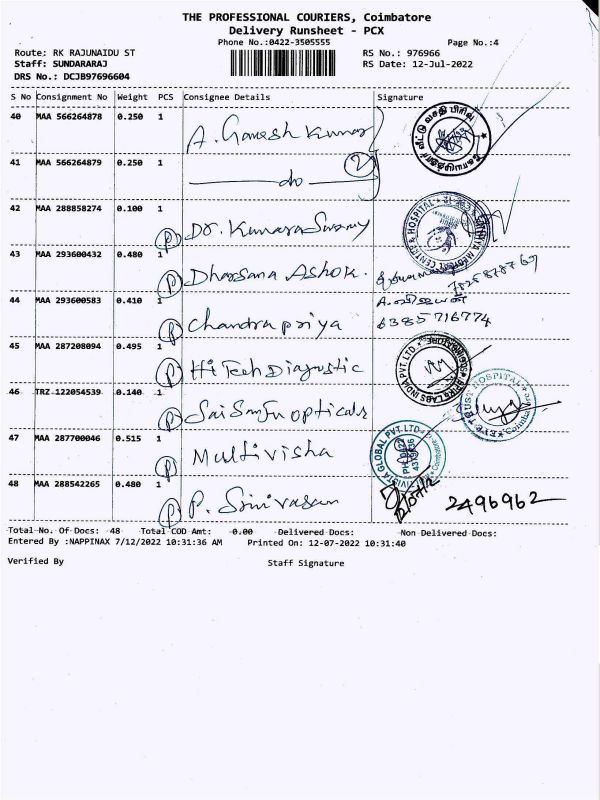 THE PROFESSIONAL COURIERS, Coimbatore
Delivery Runsheet - PCX
Phone No.:0422-3505555
Page No.:4
Route: RK RAJUNAIDU ST
RS No.: 976966
Staff: SUNDARARAJ
RS Date: 12-Jul-2022
DRS No.: DCJB97696604
S No Consignment No Weight PCS Consignee Details Signature
40 MAA 566264878 0.250 1 A. Ganesh Kumar
41 MAA 566264879 0.250 1 do 2
42 MAA 288858274 0.100 1 P Dr. Kumara Swamy
43 MAA 293600432 0.480 1 P Dharsana Ashok.
44 MAA 293600583 0.410 1 P Chandrapriya 6385716774
45 MAA 287208094 0.495 1 P HiTech Diagnostic
46 TRZ-122054539 0.140 1 P
47 MAA 287700046 0.515 1 P Multivisha
48 MAA 288542265 0.480 1 P P. Srinivasan 2496962
Total No. Of Docs: 48 Total COD Amt: 0.00 Delivered Docs: Non Delivered Docs:
Entered By :NAPPINAX 7/12/2022 10:31:36 AM Printed On: 12-07-2022 10:31:40
Verified By Staff Signature